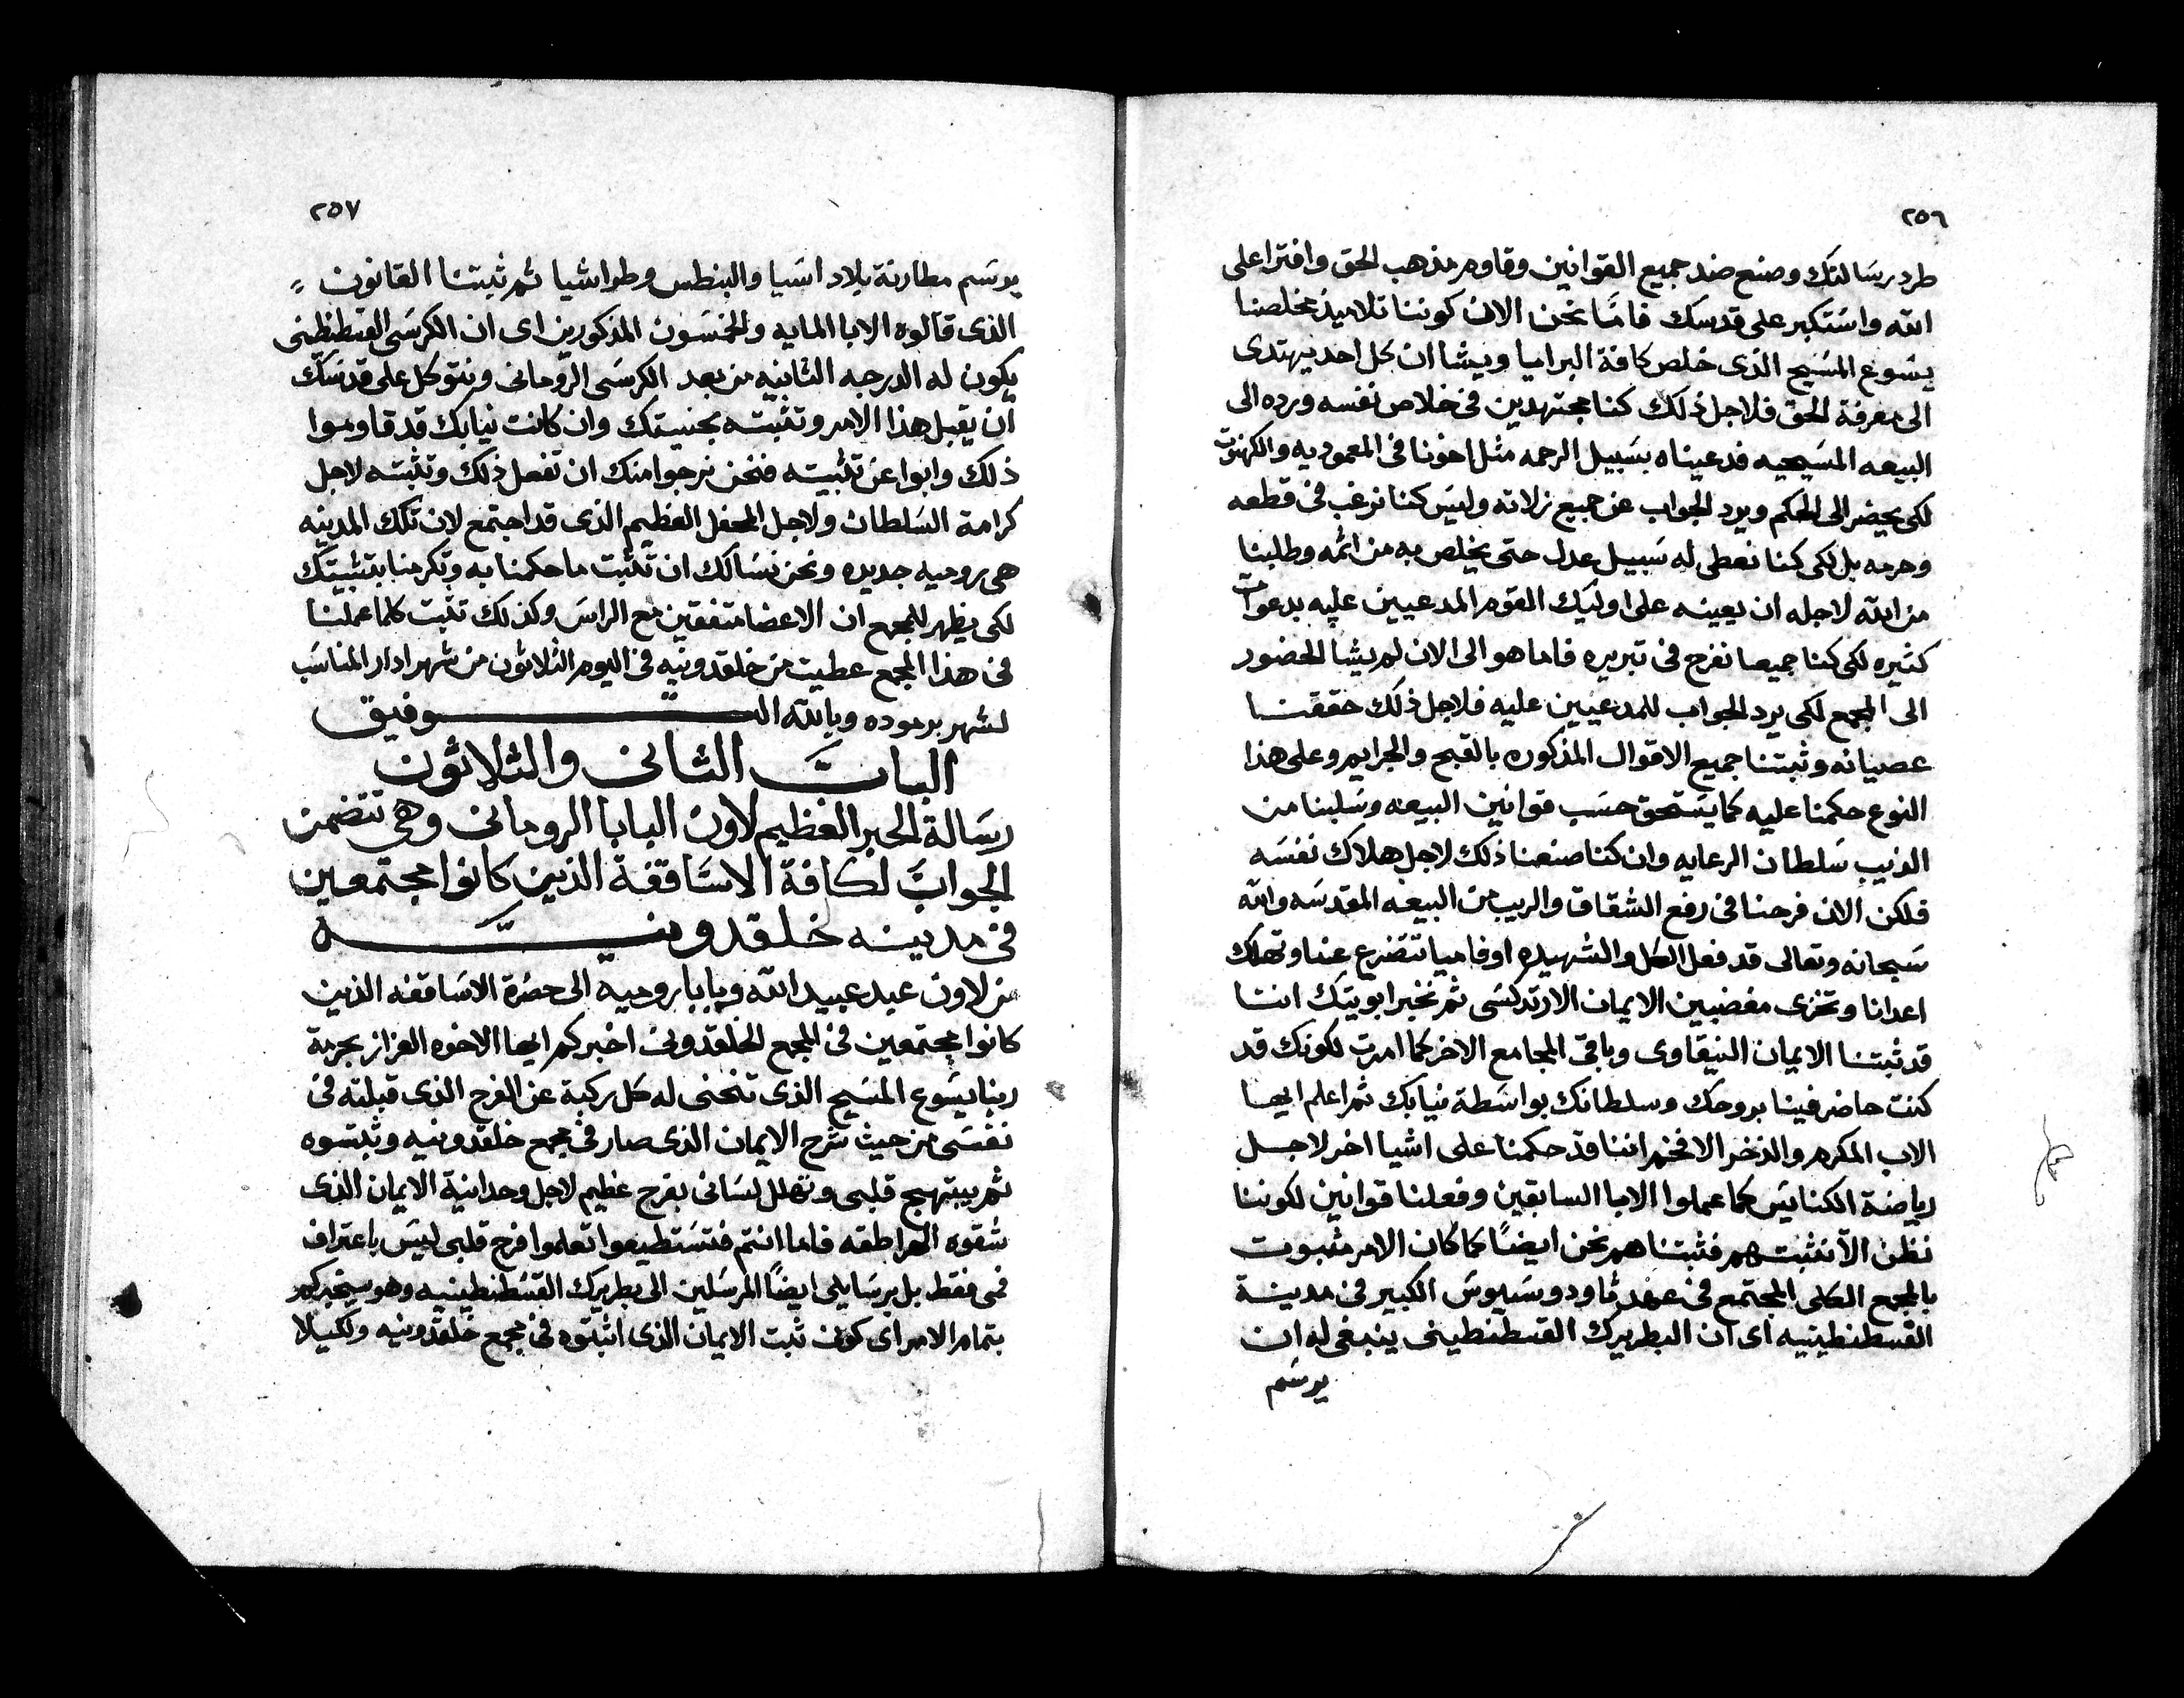 ٢٥٦
طرد رسالتك وصنع ضد جميع القوانين وقاوم مذهب الحق وافترا على
الله واستكبر على قدسك فاما نحن الان كوننا تلاميذ مخلصنا
يسوع المسيح الذى خلص كافة البرايا ويشا ان كل احد يهتدى
الى معرفة الحق فلاجل ذلك كنا مجتهدين فى خلاص نفسه ورده الى
البيعه المسيحيه فدعيناه بسبيل الرحمه مثل اخونا فى المعموديه والكهنوت
لكى يحضر الى الحكم ويرد الجواب عن جميع زلاته وليس كنا نرغب فى قطعه
وحرمه بل لكى كنا نعطى له سبيل عدل حتى يخلص به من اثمه وطلبنا
من الله لاجله ان يعينه على اوليك القوم المدعيين عليه بدعوات
كثيره لكى كنا جميعا نفرح فى تبريره فاما هو الى الان لم يشا الحضور
الى المجمع لكى يرد الجواب للمدعيين عليه فلاجل ذلك حققنا
عصيانه وثبتنا جميع الاقوال المذكوره بالقبح والجرايم وعلى هذا
النوع حكمنا عليه كما يستحق حسب قوانين البيعه وسلبنا من
الذيب سلطان الرعايه وان كنا صنعنا ذلك لاجل هلاك نفسه
فلكن الان فرحنا فى رفع الشقاق والريب من البيعه المقدسه والله
سبحانه وتعالى قد فعل الكل والشهيده اوفاميا تتضرع عنا وتهلك
اعدانا وتخزى مغضبين الايمان الارتدكسى ثم نخبر ابويتك اننا
قد ثبتنا الايمان النيقاوى وباقى المجامع الاخر كما امرت لكونك قد
كنت حاضر فينا بروحك وسلطانك بواسطة نيابك ثم اعلم ايها
الاب المكرم والذخر الافخم اننا قد حكمنا على اشيا اخر لاجل
رياضة الكنايس كما عملوا الابا السابقين وفعلنا قوانين لكوننا
نظن الا نثبتهم فثبتناهم نحن ايضًا كما كان الامر مثبوت
بالمجمع الكلى المجتمع فى عهد ثاودوسيوس الكبير فى مدينة
القسطنطينيه اى ان البطريرك القسطنطينى ينبغى له ان
يرسم
٢٥٧
يوسم مطارنة بلاد اسيا والبنطس وطواشيا ثم ثبتنا القانون
الذى قالوه الابا المايه والخمسون المذكورين اى ان الكرسى القسطنطنى
يكون له الدرجه الثانيه من بعد الكرسى الرومانى ونتوكل على قدسك
ان يقبل هذا الامر وتثبته بجنيتك وان كانت نيابك قد قاوموا
ذلك وابوا عن تثبيته فنحن نرجوا منك ان تفعل ذلك وتثبته لاجل
كرامة السلطان ولاجل المحفل العظيم الذى قد اجتمع لان تلك المدينه
هى روميه جديده ونحن نسالك ان تثبت ما حكمنا به وتكرمنا بتثبيتك
لكى يظهر للجميع ان الاعضا متفقين مع الراس وكذلك تثبت كلما عملنا
فى هذا المجمع عطيت من خلقدونيه فى اليوم الثلاثون من شهر ادار المناسب
لشهر برموده وبالله التوفيق
الباب الثانى والثلاثون
رسالة الحبر العظيم لاون البابا الرومانى وهى تتضمن
الجواب لكافة الاساقفة الذين كانوا مجتمعين
فى مدينه خلقدونيه
من لاون عبد عبيد الله وبابا روميه الى حضرة الاساقفه الذين
كانوا مجتمعين فى المجمع الخلقدونى اخبركم ايها الاخوه العزاز بحرمة
ربنا يسوع المسيح الذى تنحنى له كل ركبة عن الفرح الذى قبلته فى
نفسى من حيث شرح الايمان الذى صار فى مجمع خلقدونيه وثبتوه
ثم يبتهج قلبى وتهلل لسانى بفرح عظيم لاجل وحدانية الايمان الذى
شقوه الهراطقه فاما انتم فتستطيعوا تعلموا فرح قلبى ليس باعتراف
فمى فقط بل برسايلى ايضًا المرسلين الى بطريرك القسطنطينيه وهو سيخبركم
بتمام الامر اى كونى ثبت الايمان الذى اثبتوه فى مجمع خلقدونيه ولكيلا